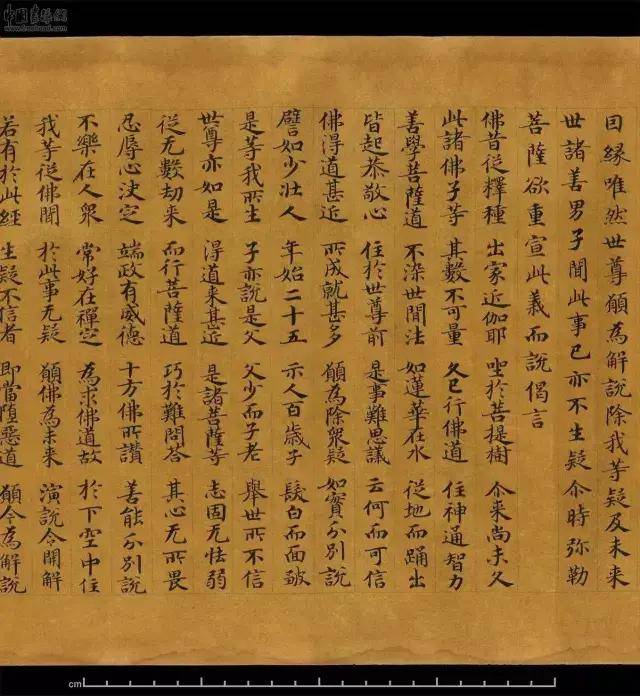 因縁唯然世尊願為解說除我等疑及未来
世諸善男子聞此事已亦不生疑尒時弥勒
菩薩欲重宣此義而說偈言
佛昔從釋種 出家近伽耶 坐於菩提樹 尒来尚未久
此諸佛子等 其數不可量 久已行佛道 住神通智力
善學菩薩道 不染世間法 如蓮華在水 從地而踊出
皆起恭敬心 住於世尊前 是事難思議 云何而可信
佛得道甚近 所成就甚多 願為除衆疑 如實分別說
譬如少壮人 年始二十五 示人百歳子 髮白而面皺
是等我所生 子亦說是父 父少而子老 舉世所不信
世尊亦如是 得道来甚近 是諸菩薩等 志固无怯弱
從无數劫来 而行菩薩道 巧於難問答 其心无所畏
忍辱心决定 端政有威德 十方佛所讚 善能分別說
不樂在人衆 常好在禪定 為求佛道故 於下空中住
我等從佛聞 於此事无疑 願佛為未来 演說令開解
若有於此經 生疑不信者 即當墮惡道 願今為解說
cm